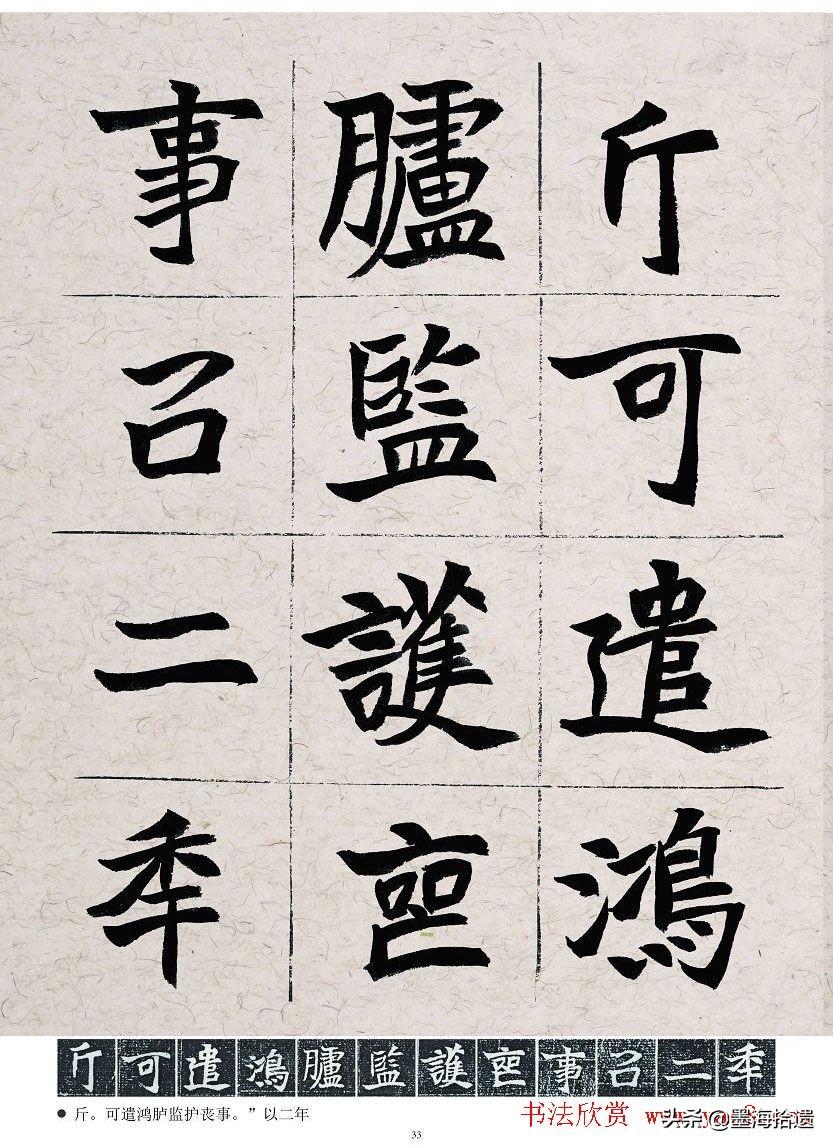 斤可遣鴻
臚監護喪
事㠯二秊
斤可遣鴻臚監護喪事㠯二秊
● 斤。可遣鸿胪监护丧事。”以二年
书法欣赏
头条@墨海拾遗
33